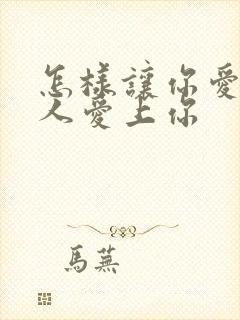 怎樣讓你愛
人愛上你
馬蕪